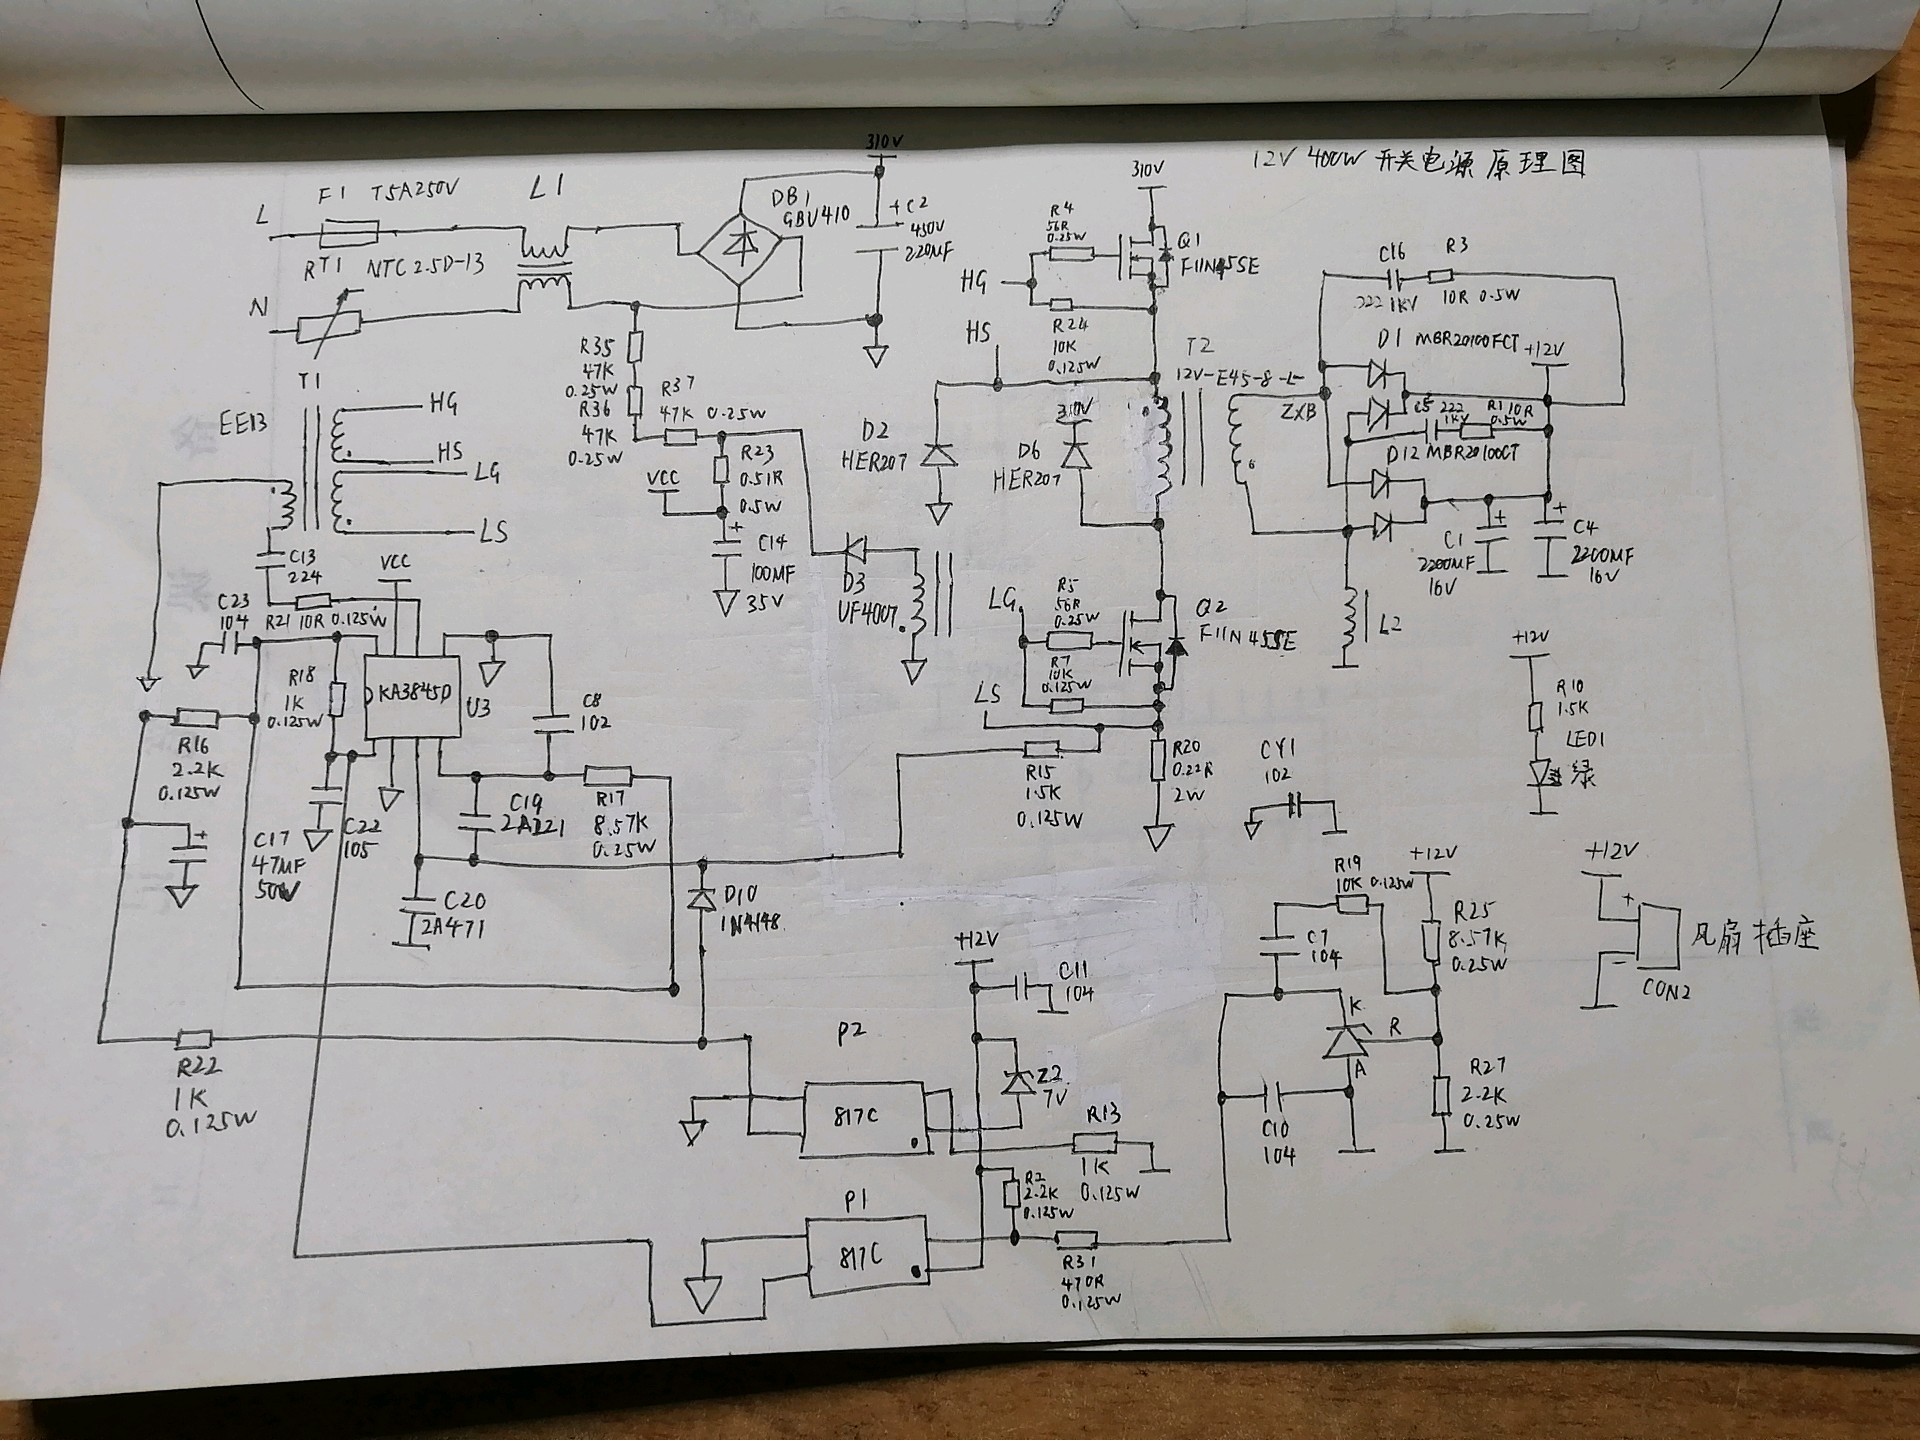 12V 400W 开关电源原理图
310V
F1 T5A250V
L1
L
RT1 NTC 2.5D-13
N
DB1
GBU410
+C2
450V
220MF
310V
R4
56R
0.25W
Q1
HG
R24
10K
0.125W
HS
T2
12V-E45-8-L
C16
222 1KV
R3
10R 0.5W
D1 MBR20100FCT
+12V
ZXB
222
1KV
R1 10R
0.5W
D12 MBR20100CT
+
C1
2200MF
16V
+
C4
2200MF
16V
L2
R35
47K
0.25W
R36
47K
0.25W
R37
47K 0.25W
R23
0.51R
0.5W
VCC
+
C14
100MF
35V
D2
HER207
310V
D6
HER207
D3
UF4007
T1
EE13
HG
HS
LG
LS
C13
224
VCC
C23
104
R21 10R 0.125W
R18
1K
0.125W
KA3845D
U3
C8
102
R16
2.2K
0.125W
+
C17
47MF
50V
C22
105
C19
2A221
R17
8.57K
0.25W
C20
2A471
LG
R5
56R
0.25W
R7
10K
0.125W
Q2
LS
R15
1.5K
0.125W
R20
0.22R
2W
CY1
102
+12V
R10
1.5K
LED1
绿
D10
1N4148
+12V
C11
104
R19
10K 0.125W
+12V
C7
104
R25
8.57K
0.25W
K
R
A
R27
2.2K
0.25W
C10
104
+12V
+
-
风扇插座
CON2
R22
1K
0.125W
P2
817C
Z2
7V
R13
1K
0.125W
P1
817C
R2
2.2K
0.125W
R31
470R
0.125W